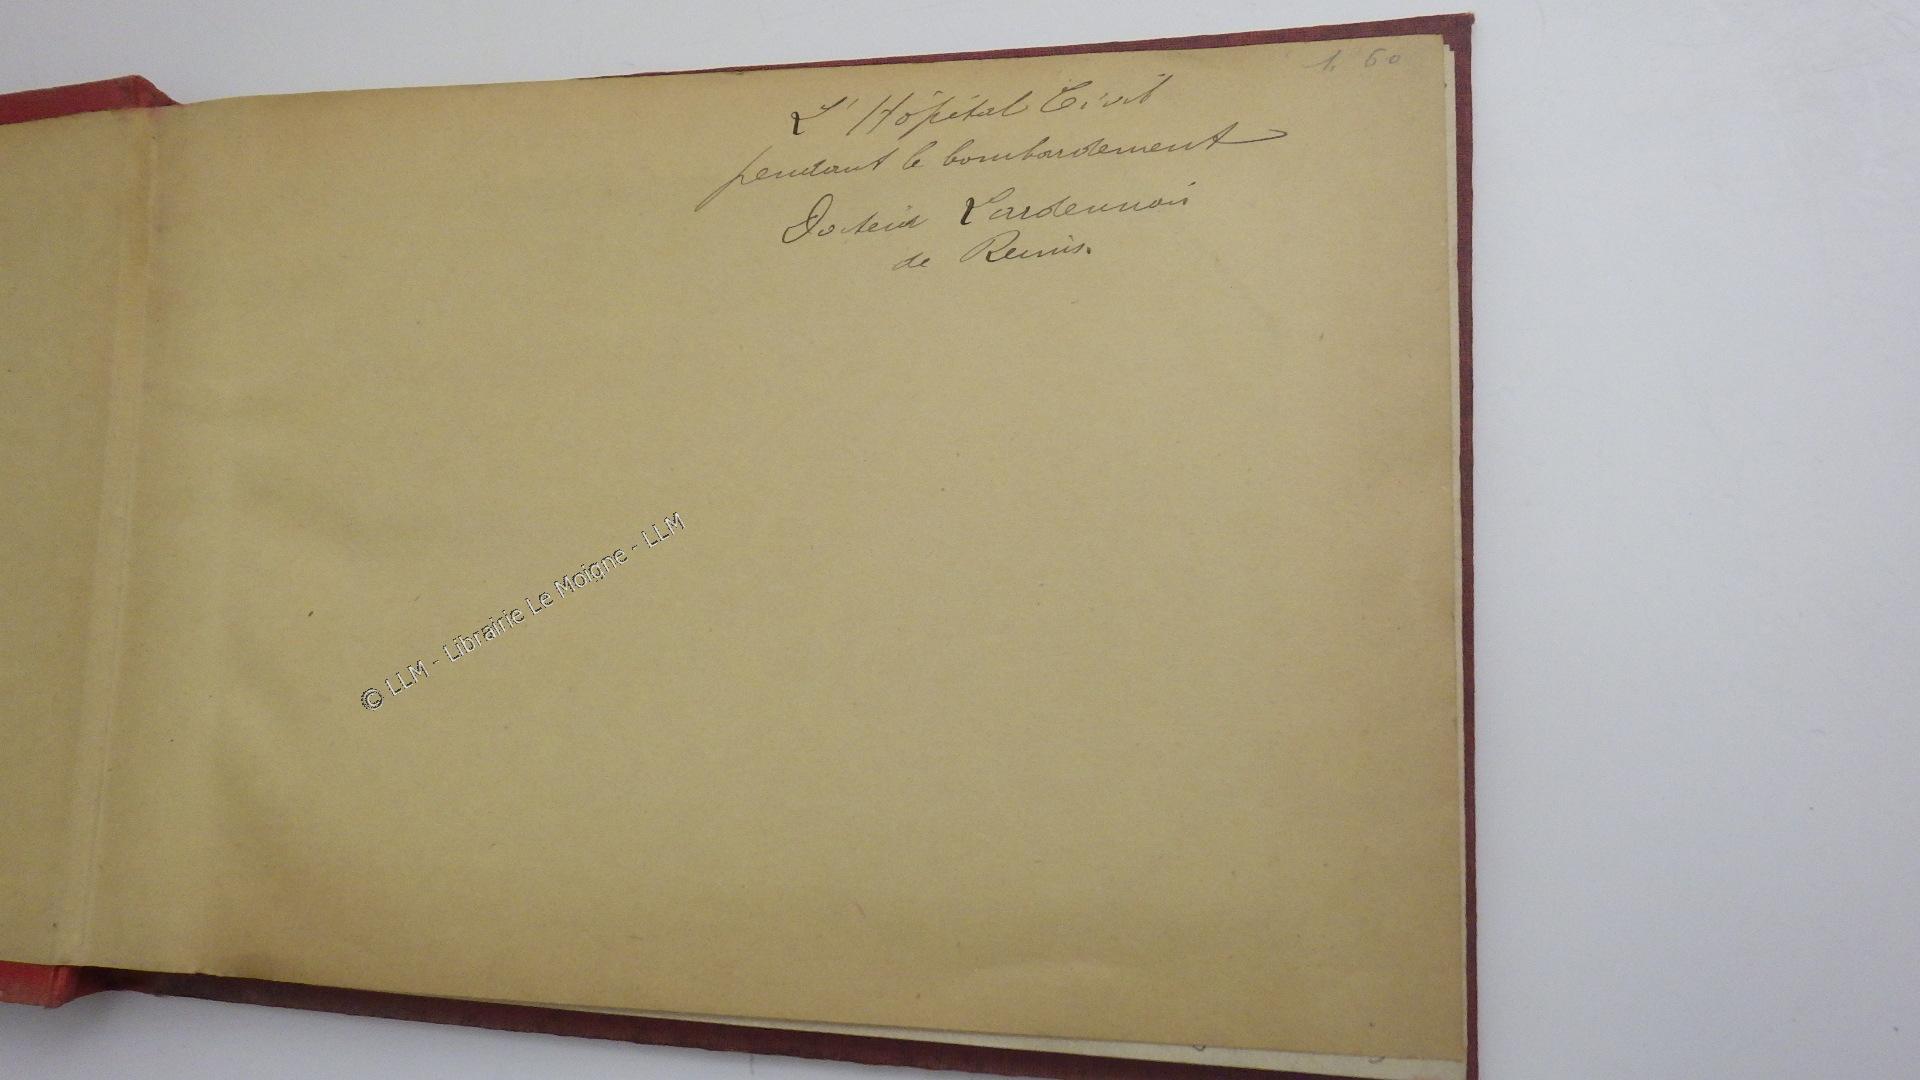 1. 60
L'Hôpital Civil
pendant le bombardement
Docteur Lardennois
de Reims.
© LLM - Librairie Le Moigne - LLM